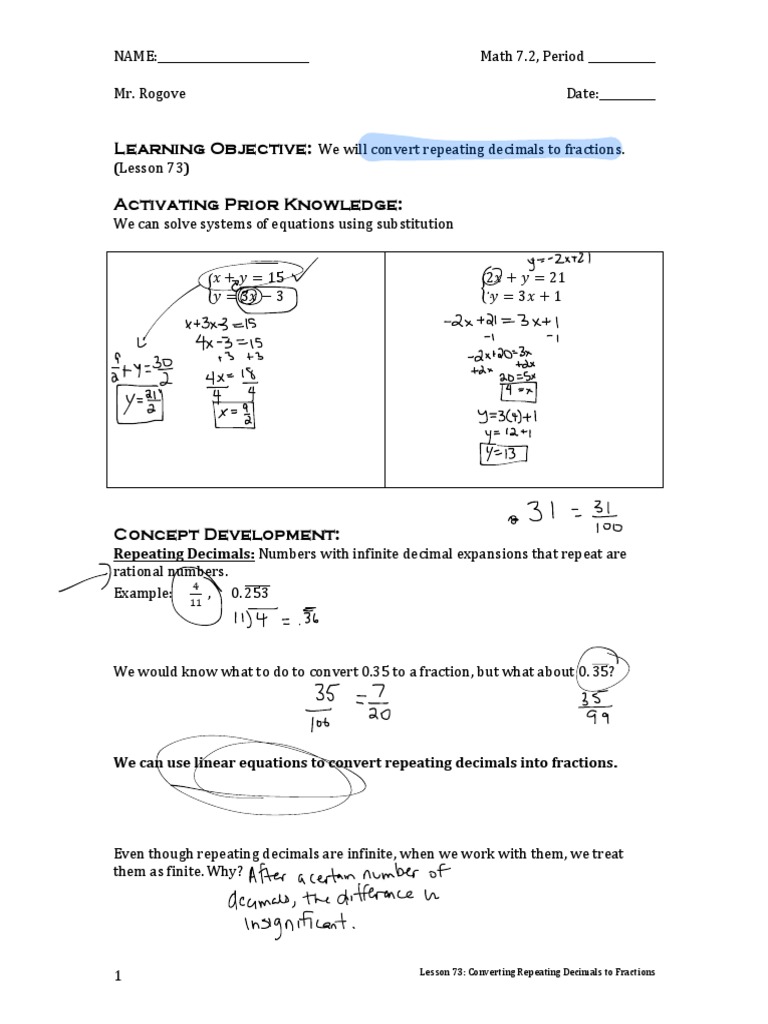 NAME:______________________ Math 7.2, Period __________
Mr. Rogove Date:_________
Learning Objective: We will convert repeating decimals to fractions.
(Lesson 73)
Activating Prior Knowledge:
We can solve systems of equations using substitution
x + y = 15
y = 3x − 3
x+3x-3=15
4x-3=15
+3 +3
4x = 18
4 4
x = 9/2
9/2 + y = 30/2
y = 21/2
y=-2x+21
2x + y = 21
y = 3x + 1
-2x+21 = 3x+1
-1 -1
-2x+20=3x
+2x +2x
20=5x
4=x
y=3(4)+1
y= 12+1
y=13
.31 = 31/100
Concept Development:
Repeating Decimals: Numbers with infinite decimal expansions that repeat are
rational numbers.
Example: 4/11 , 0.2̅5̅3̅
11)4 = .3̅6̅
We would know what to do to convert 0.35 to a fraction, but what about 0.3̅5̅?
35/100 = 7/20
35/99
We can use linear equations to convert repeating decimals into fractions.
Even though repeating decimals are infinite, when we work with them, we treat
them as finite. Why? After a certan number of
decimals, the difference is
insignificant.
1 Lesson 73: Converting Repeating Decimals to Fractions